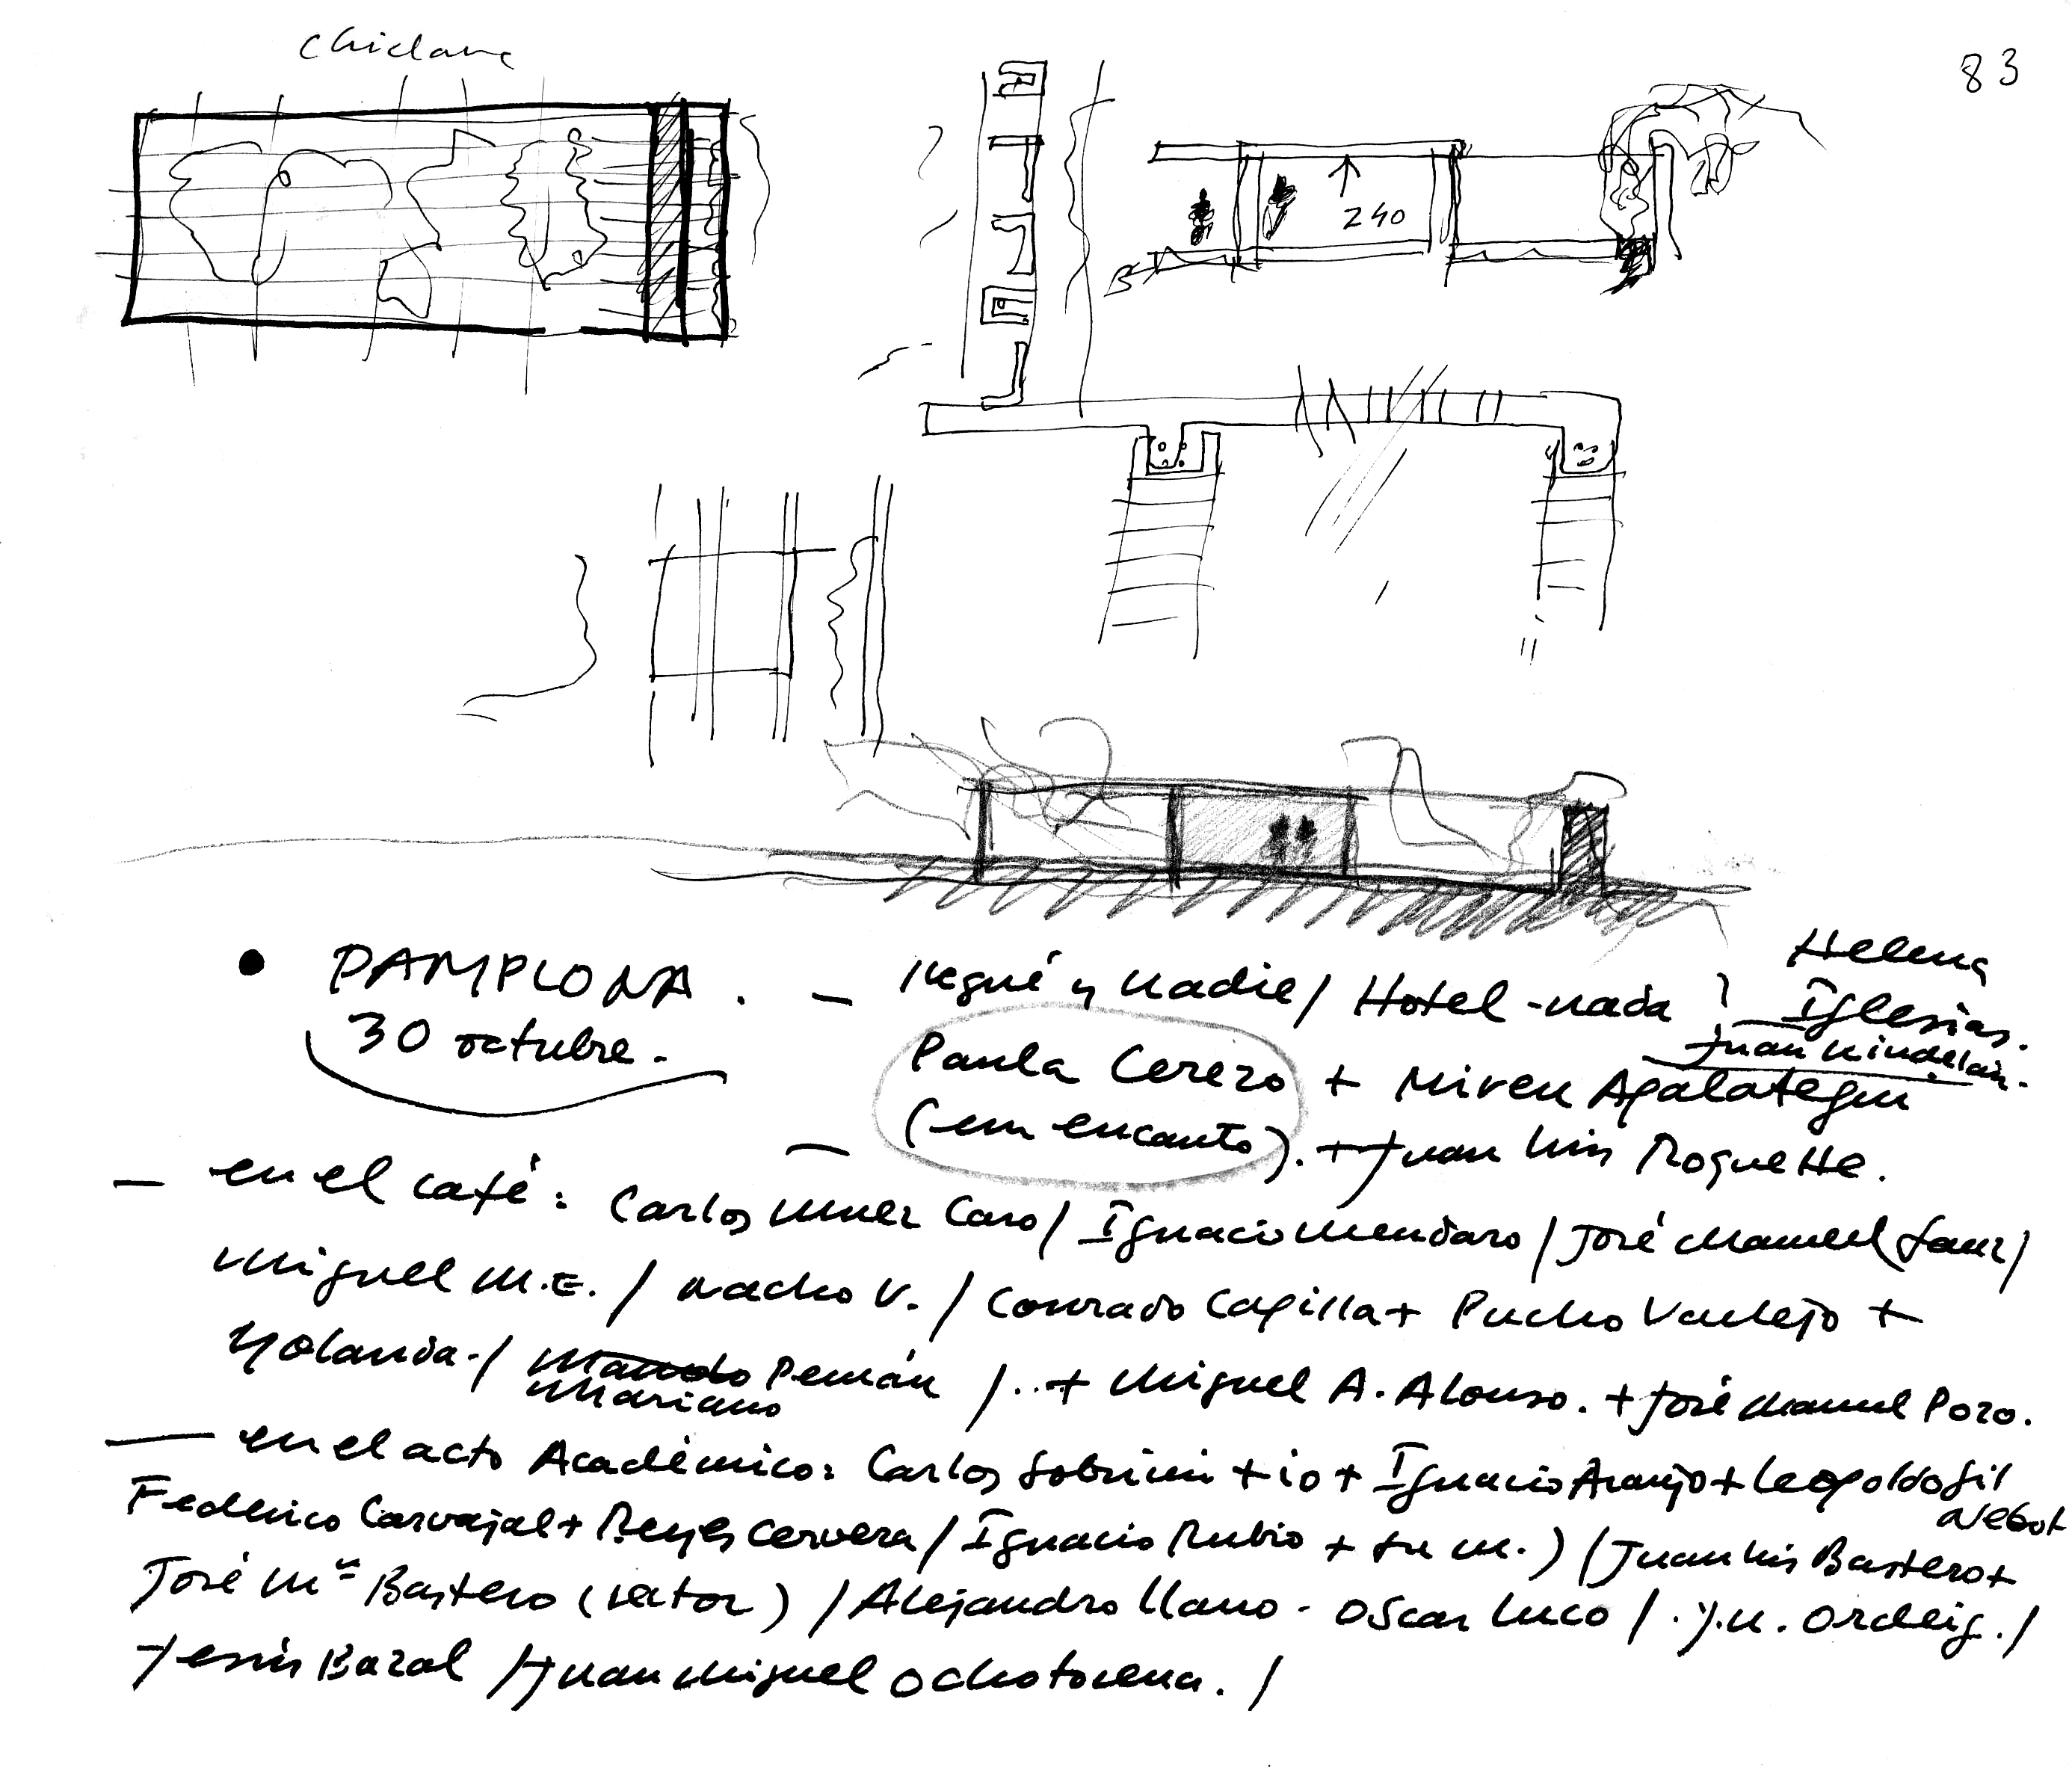 Chiclana
83
240
• PAMPLONA. — llegué y nadie / Hotel - nada
Helena
Iglesias.
Juan Kindelán.
30 octubre.
Paula Cerezo + Miren Apalategui
(un encanto). + Juan Luis Roquette.
— en el café: Carlos Muñez Caro / Ignacio Mendaro / José Manuel Sanz /
Miguel M.E. / Nacho V. / Conrado Capilla + Pucho Vallejo +
Yolanda - / Pemán / .. + Miguel A. Alonso. + José Manuel Pozo.
Mariano
— en el acto Académico: Carlos Sobrini + io + Ignacio Araujo + Leopoldo Gil
Nebot
Federico Carvajal + Reyes Cervera / Ignacio Rubio + su m.) / Juan Luis Bastero +
José Mª Bastero (rector) / Alejandro Llano - Oscar Luco / . Ordeig. /
Jesús Bazal / Juan Miguel Ochotorena. /